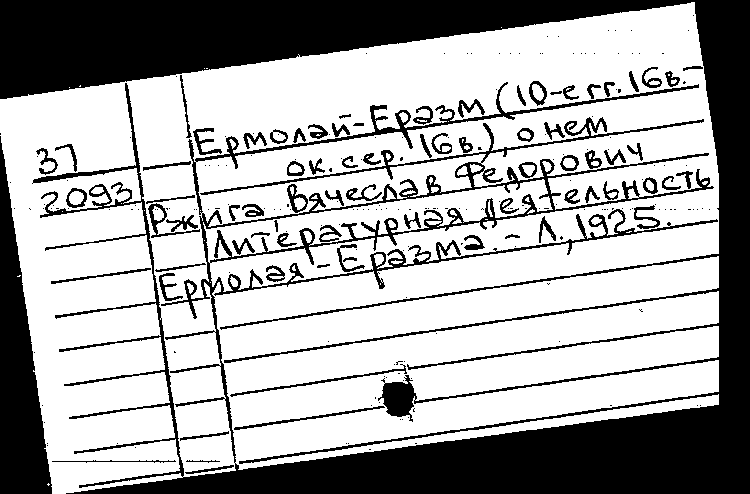 37
2093
Ермолай-Еразм (10-е гг. 16в.-
ок. сер. 16в.), о нем
Ржига, Вячеслав Федорович
Литературная деятельность
Ермолая-Еразма. - Л., 1925.